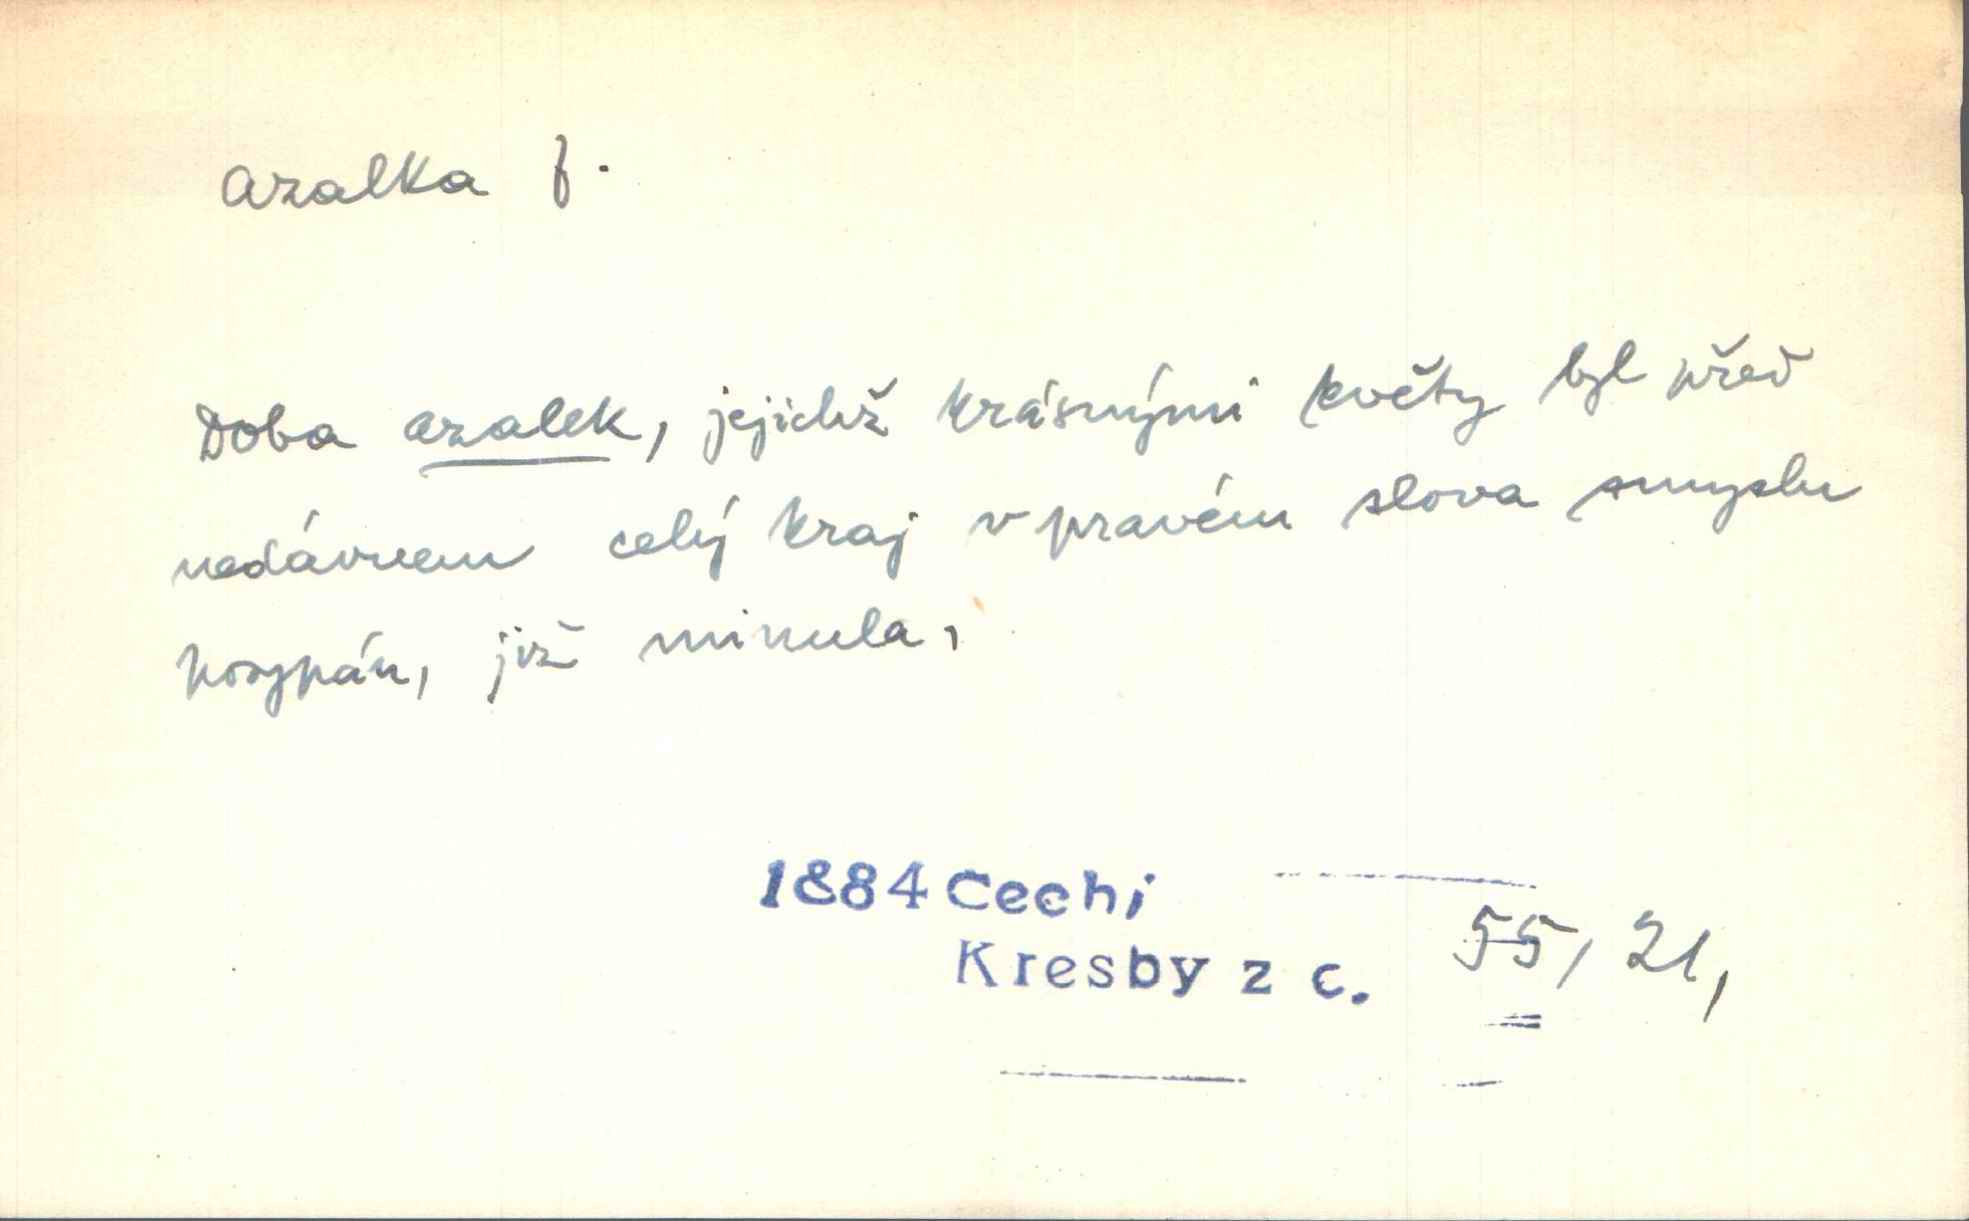 azalka f.
Doba azalek, jejichž krásnými květy byl před
nedávnem celý kraj v pravém slova smyslu
posypán, již minula,
1884 Cechi
Kresby z c. 55, 21,